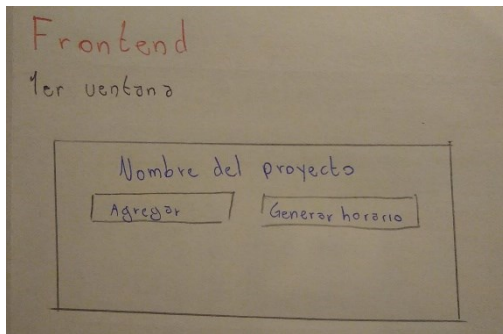 Frontend
1er ventana
Nombre del proyecto
Agregar
Generar horario